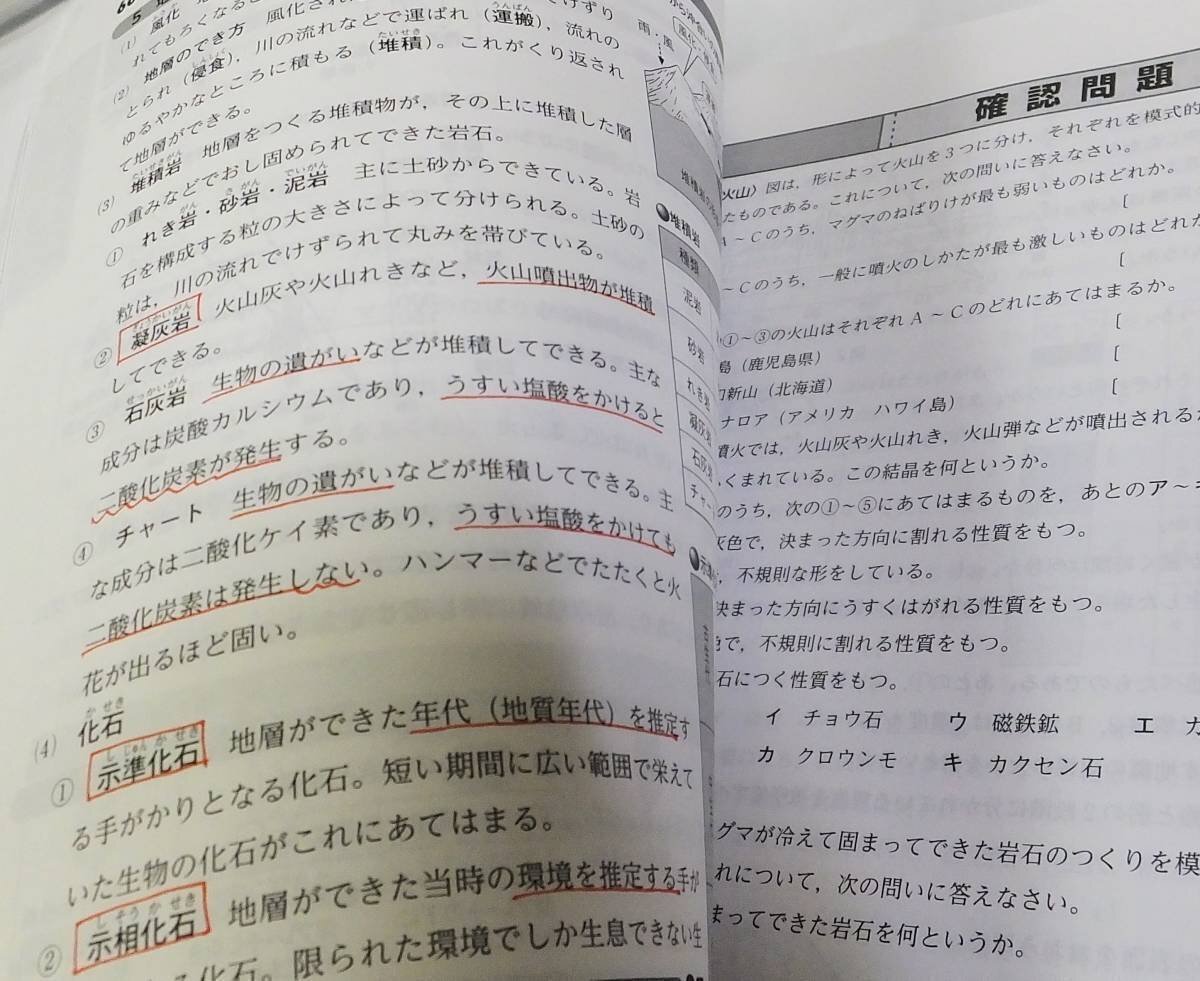 60
5
(1) 風化
れてもろくなる
(2) 地層のでき方 風化され
とられ(侵食),川の流れなどで運ばれ(運搬),流れの
ゆるやかなところに積もる(堆積)。これがくり返され
て地層ができる。
(3) 堆積岩 地層をつくる堆積物が,その上に堆積した層
の重みなどでおし固められてできた岩石。
① れき岩・砂岩・泥岩 主に土砂からできている。岩
石を構成する粒の大きさによって分けられる。土砂の
粒は,川の流れでけずられて丸みを帯びている。
② 凝灰岩 火山灰や火山れきなど,火山噴出物が堆積
してできる。
③ 石灰岩 生物の遺がいなどが堆積してできる。主な
成分は炭酸カルシウムであり,うすい塩酸をかけると
二酸化炭素が発生する。
④ チャート 生物の遺がいなどが堆積してできる。主
な成分は二酸化ケイ素であり,うすい塩酸をかけても
二酸化炭素は発生しない。ハンマーなどでたたくと火
花が出るほど固い。
(4) 化石
① 示準化石 地層ができた年代(地質年代)を推定す
る手がかりとなる化石。短い期間に広い範囲で栄えて
いた生物の化石がこれにあてはまる。
② 示相化石 地層ができた当時の環境を推定する手が
る化石。限られた環境でしか生息できない生
雨・風
●堆積岩
種類
泥岩
砂岩
れき岩
凝灰岩
石灰岩
チャー
確認問題
火山〉図は,形によって火山を3つに分け,それぞれを模式的
たものである。これについて,次の問いに答えなさい。
A~Cのうち,マグマのねばりけが最も弱いものはどれか。
[
~Cのうち,一般に噴火のしかたが最も激しいものはどれか
[
①~③の火山はそれぞれA~Cのどれにあてはまるか。
島(鹿児島県) [
新山(北海道) [
ナロア(アメリカ ハワイ島) [
噴火では,火山灰や火山れき,火山弾などが噴出される
くまれている。この結晶を何というか。
のうち,次の①~⑤にあてはまるものを,あとのア~キ
灰色で,決まった方向に割れる性質をもつ。
,不規則な形をしている。
決まった方向にうすくはがれる性質をもつ。
色で,不規則に割れる性質をもつ。
石につく性質をもつ。
イ チョウ石 ウ 磁鉄鉱 エ カ
カ クロウンモ キ カクセン石
グマが冷えて固まってできた岩石のつくりを模
れについて,次の問いに答えなさい。
まってできた岩石を何というか。